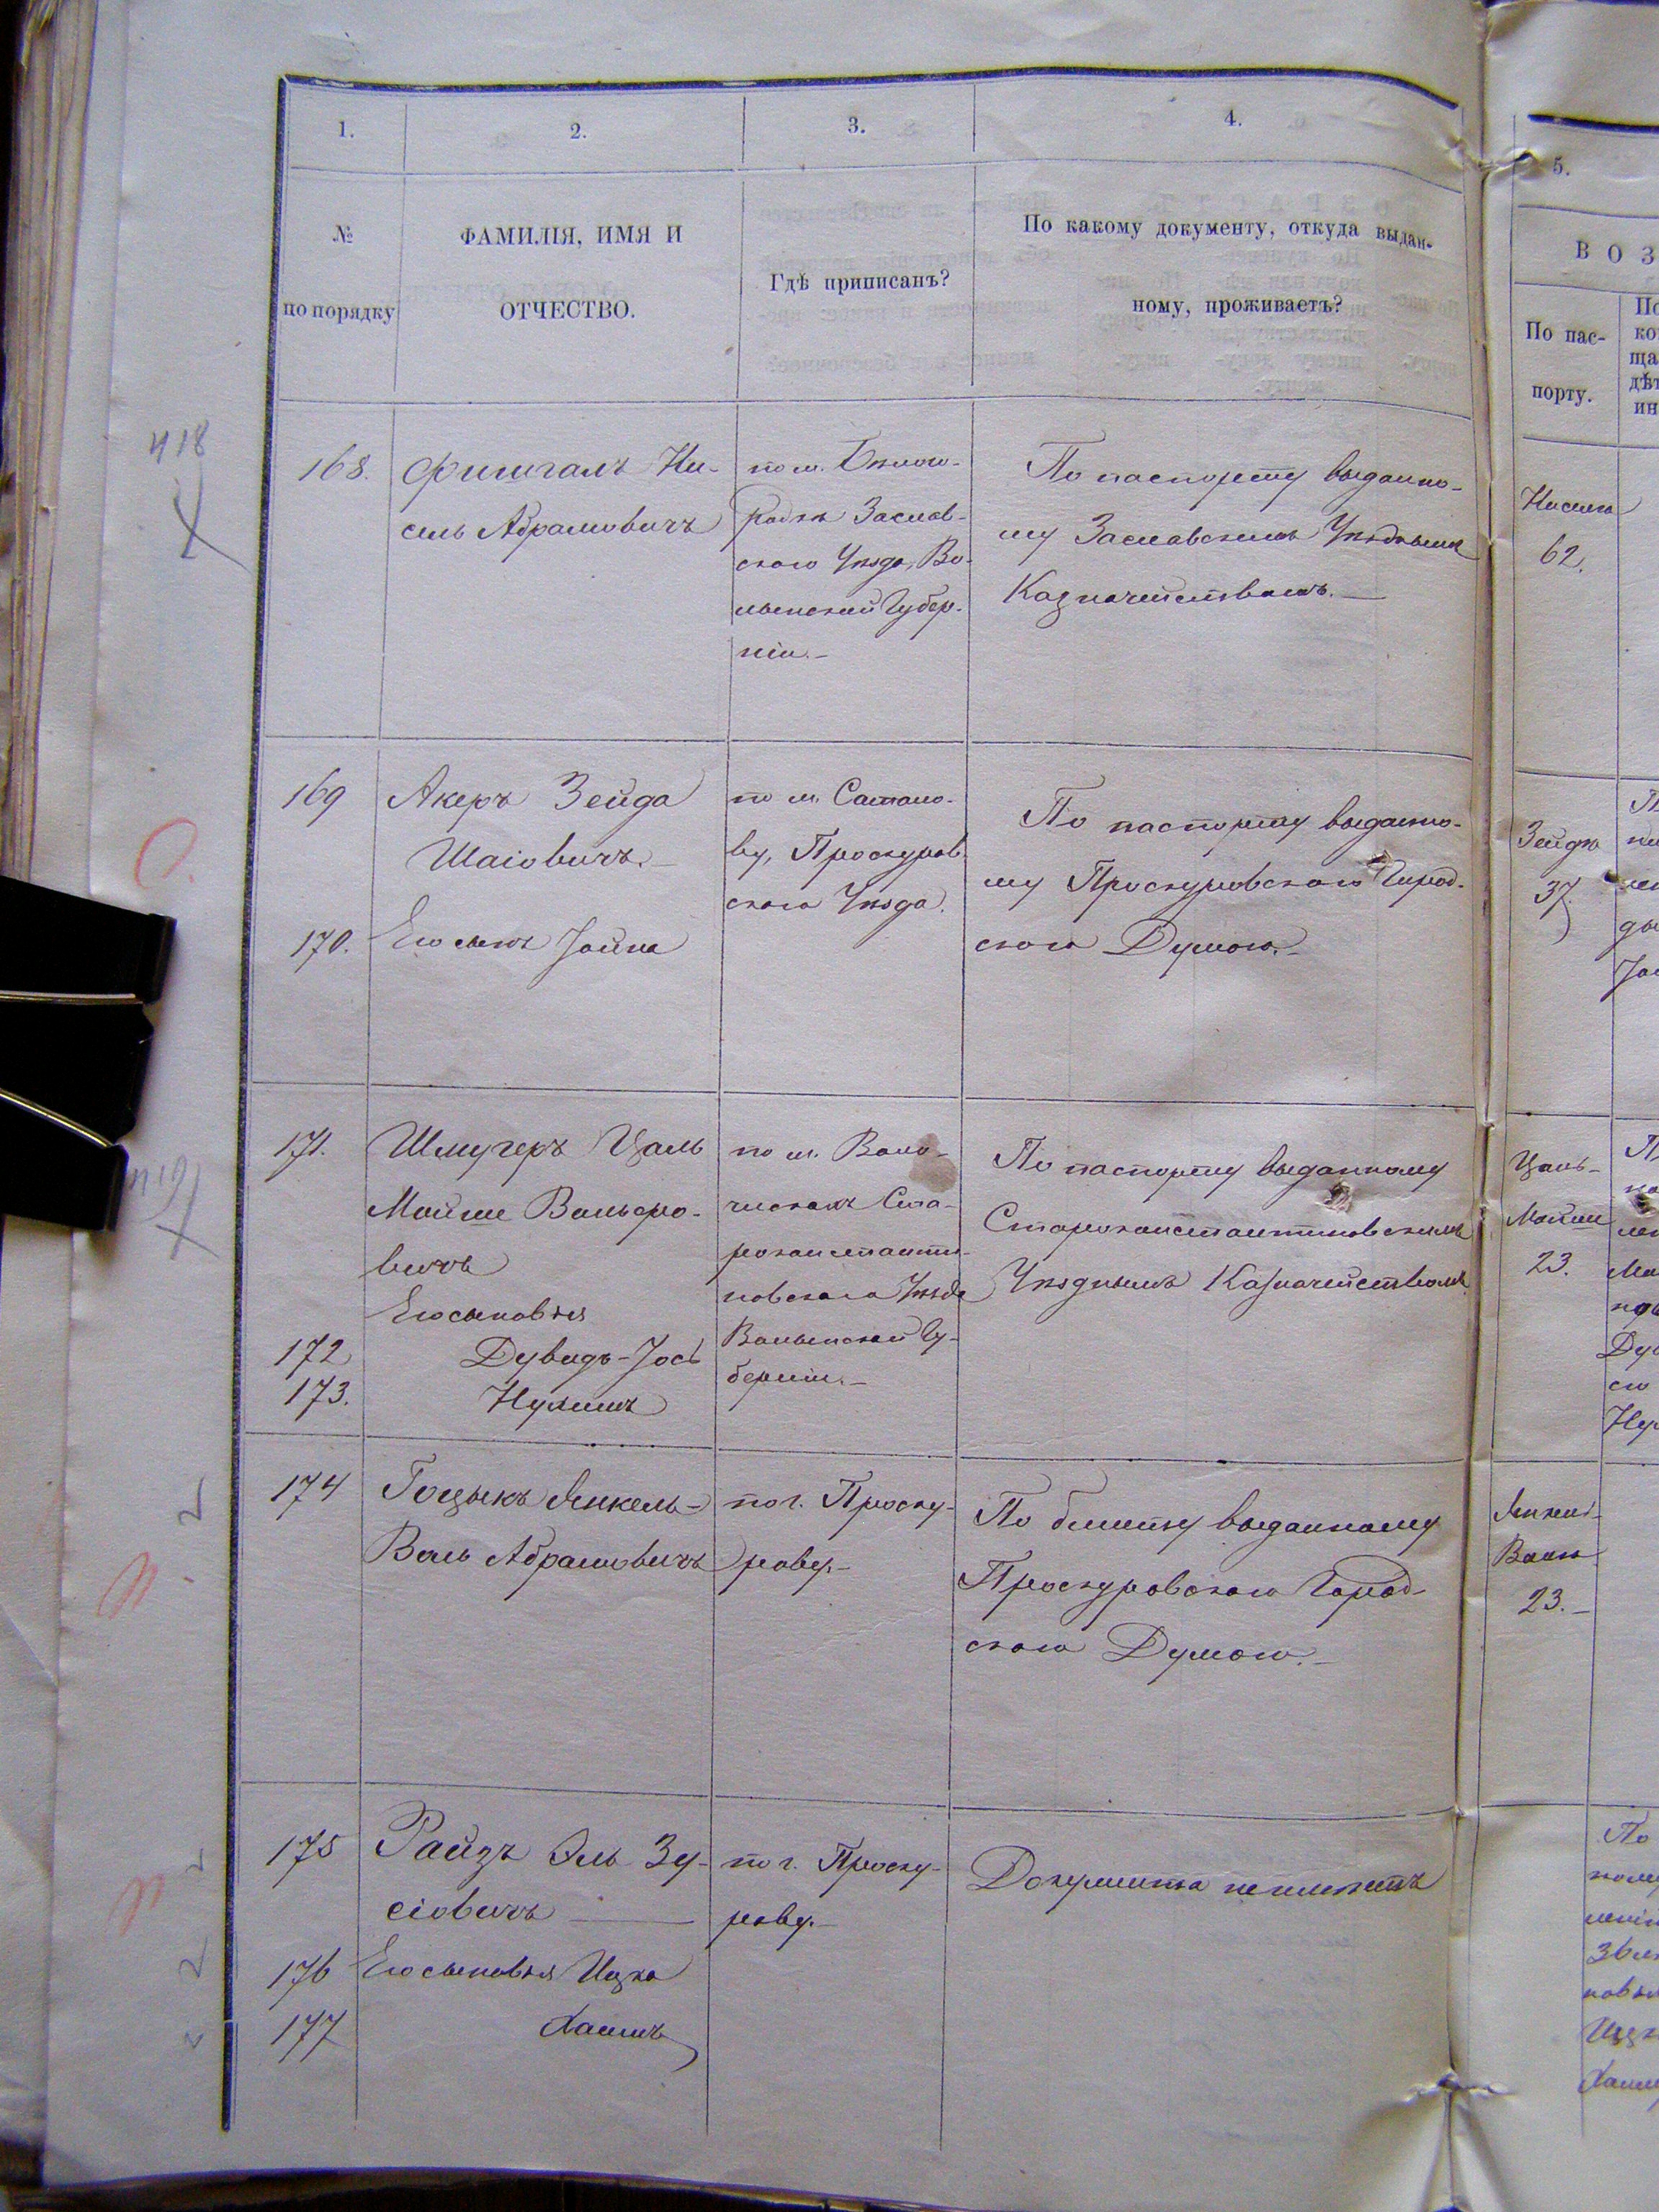 1.
2.
3.
4.
№
по порядку
ФАМИЛІЯ, ИМЯ И
ОТЧЕСТВО.
Гдѣ приписанъ?
По какому документу, откуда выдан-
ному, проживаетъ?
418
168.
Фишгалъ Ни-
сель Абрамовичъ
по м. Бѣлого-
родкѣ Заслав-
скаго Уѣзда, Во-
лынской Губер-
ніи.-
По паспорту выданно-
му Заславскимъ Уѣзднымъ
Казначействомъ.-
169
Акеръ Зейда
Шаіовичъ.-
170.
Его сынъ Іойна
по м. Сатано-
ву, Проскуров-
скаго Уѣзда.
По паспорту выданно-
му Проскуровскою Город-
скою Думою.-
171.
Шмугеръ Цаль
Мойше Вольфо-
вичъ
Его сыновья
172
Дувидъ-Іось
173.
Нухимъ
по м. Воло-
чискамъ Ста-
роконстанти-
новскаго Уѣзда
Волынской Гу-
берніи.-
По паспорту выданному
Староконстантиновскимъ
Уѣзднымъ Казначействомъ.
174
Гоцыкъ Янкель-
Воль Абрамовичъ
по г. Проску-
рову.-
По билету выданному
Проскуровскою Город-
скою Думою.-
175
Райзъ Эль Зу-
сіовичъ
176
Его сыновья Ицко
177
Хаимъ
по г. Проску-
рову.-
Документа не имѣетъ
5.
ВОЗ
По пас-
порту.
Нисель
62.
Зейдѣ
37.
Цаль-
Мойше
23.
Янкель-
Воль
23.-
По